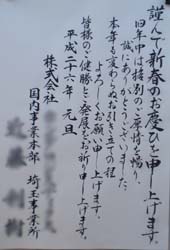 謹んで新春のお慶びを申し上げます。
旧年中は格別のご厚情を賜り、
誠にありがとうございました。
本年も変わらぬお引き立ての程
よろしくお願い申し上げます。
皆様のご健勝とご発展をお祈り申し上げます。
平成二十六年 元旦
株式会社
国内事業本部 埼玉事業所